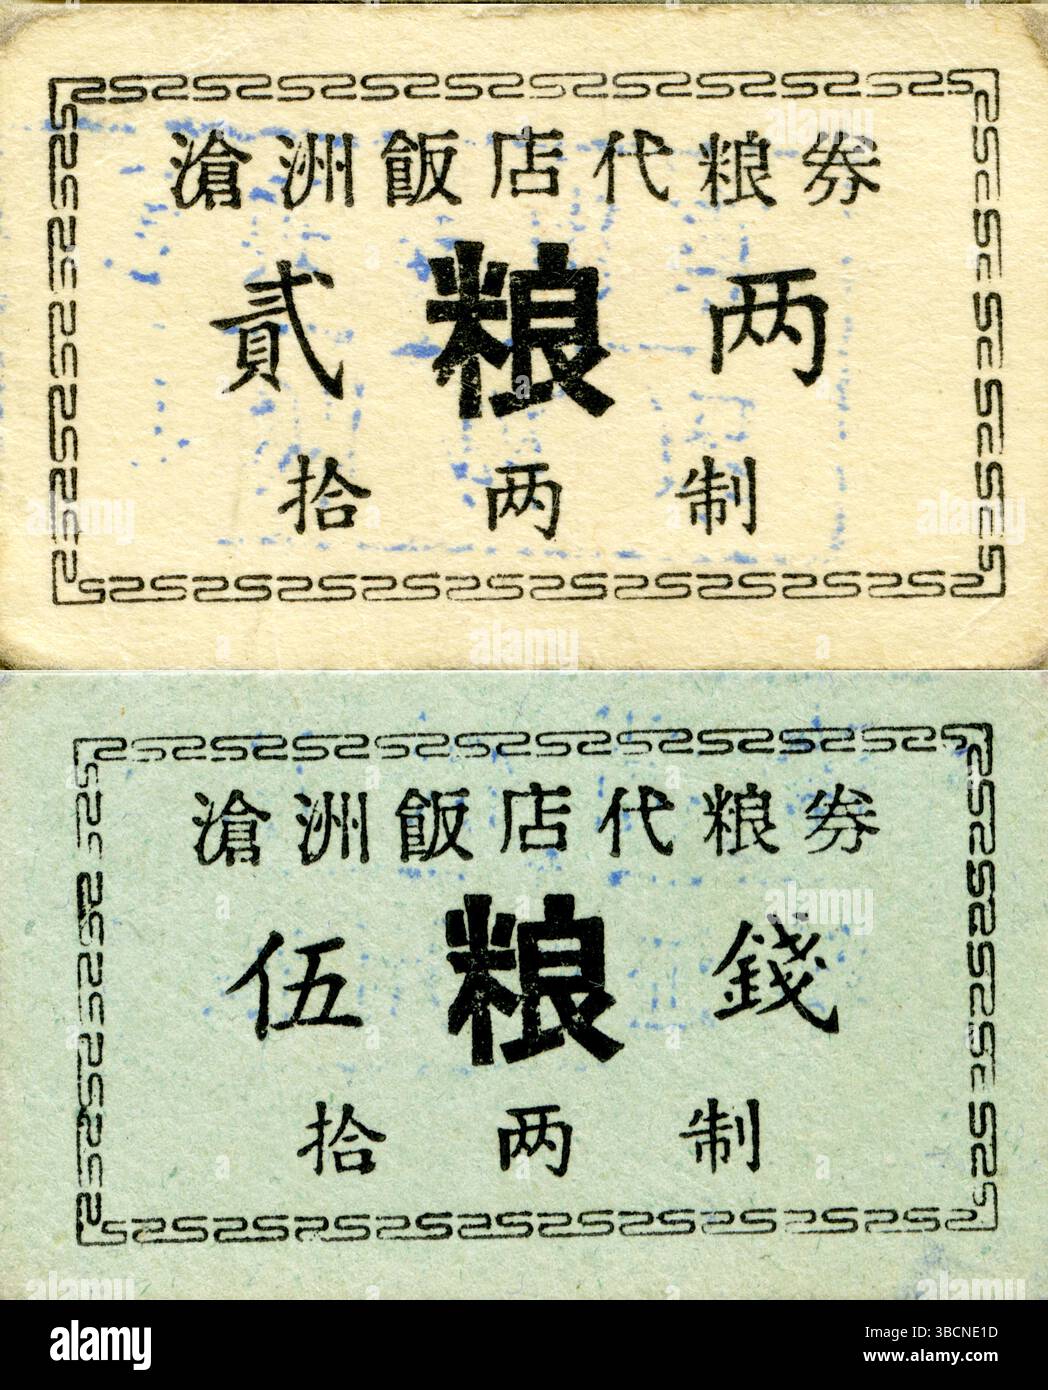 滄洲飯店代粮券
貳粮两
拾两制
滄洲飯店代粮券
伍粮錢
拾两制
alamy
Image ID: 3BCNE1D
www.alamy.com